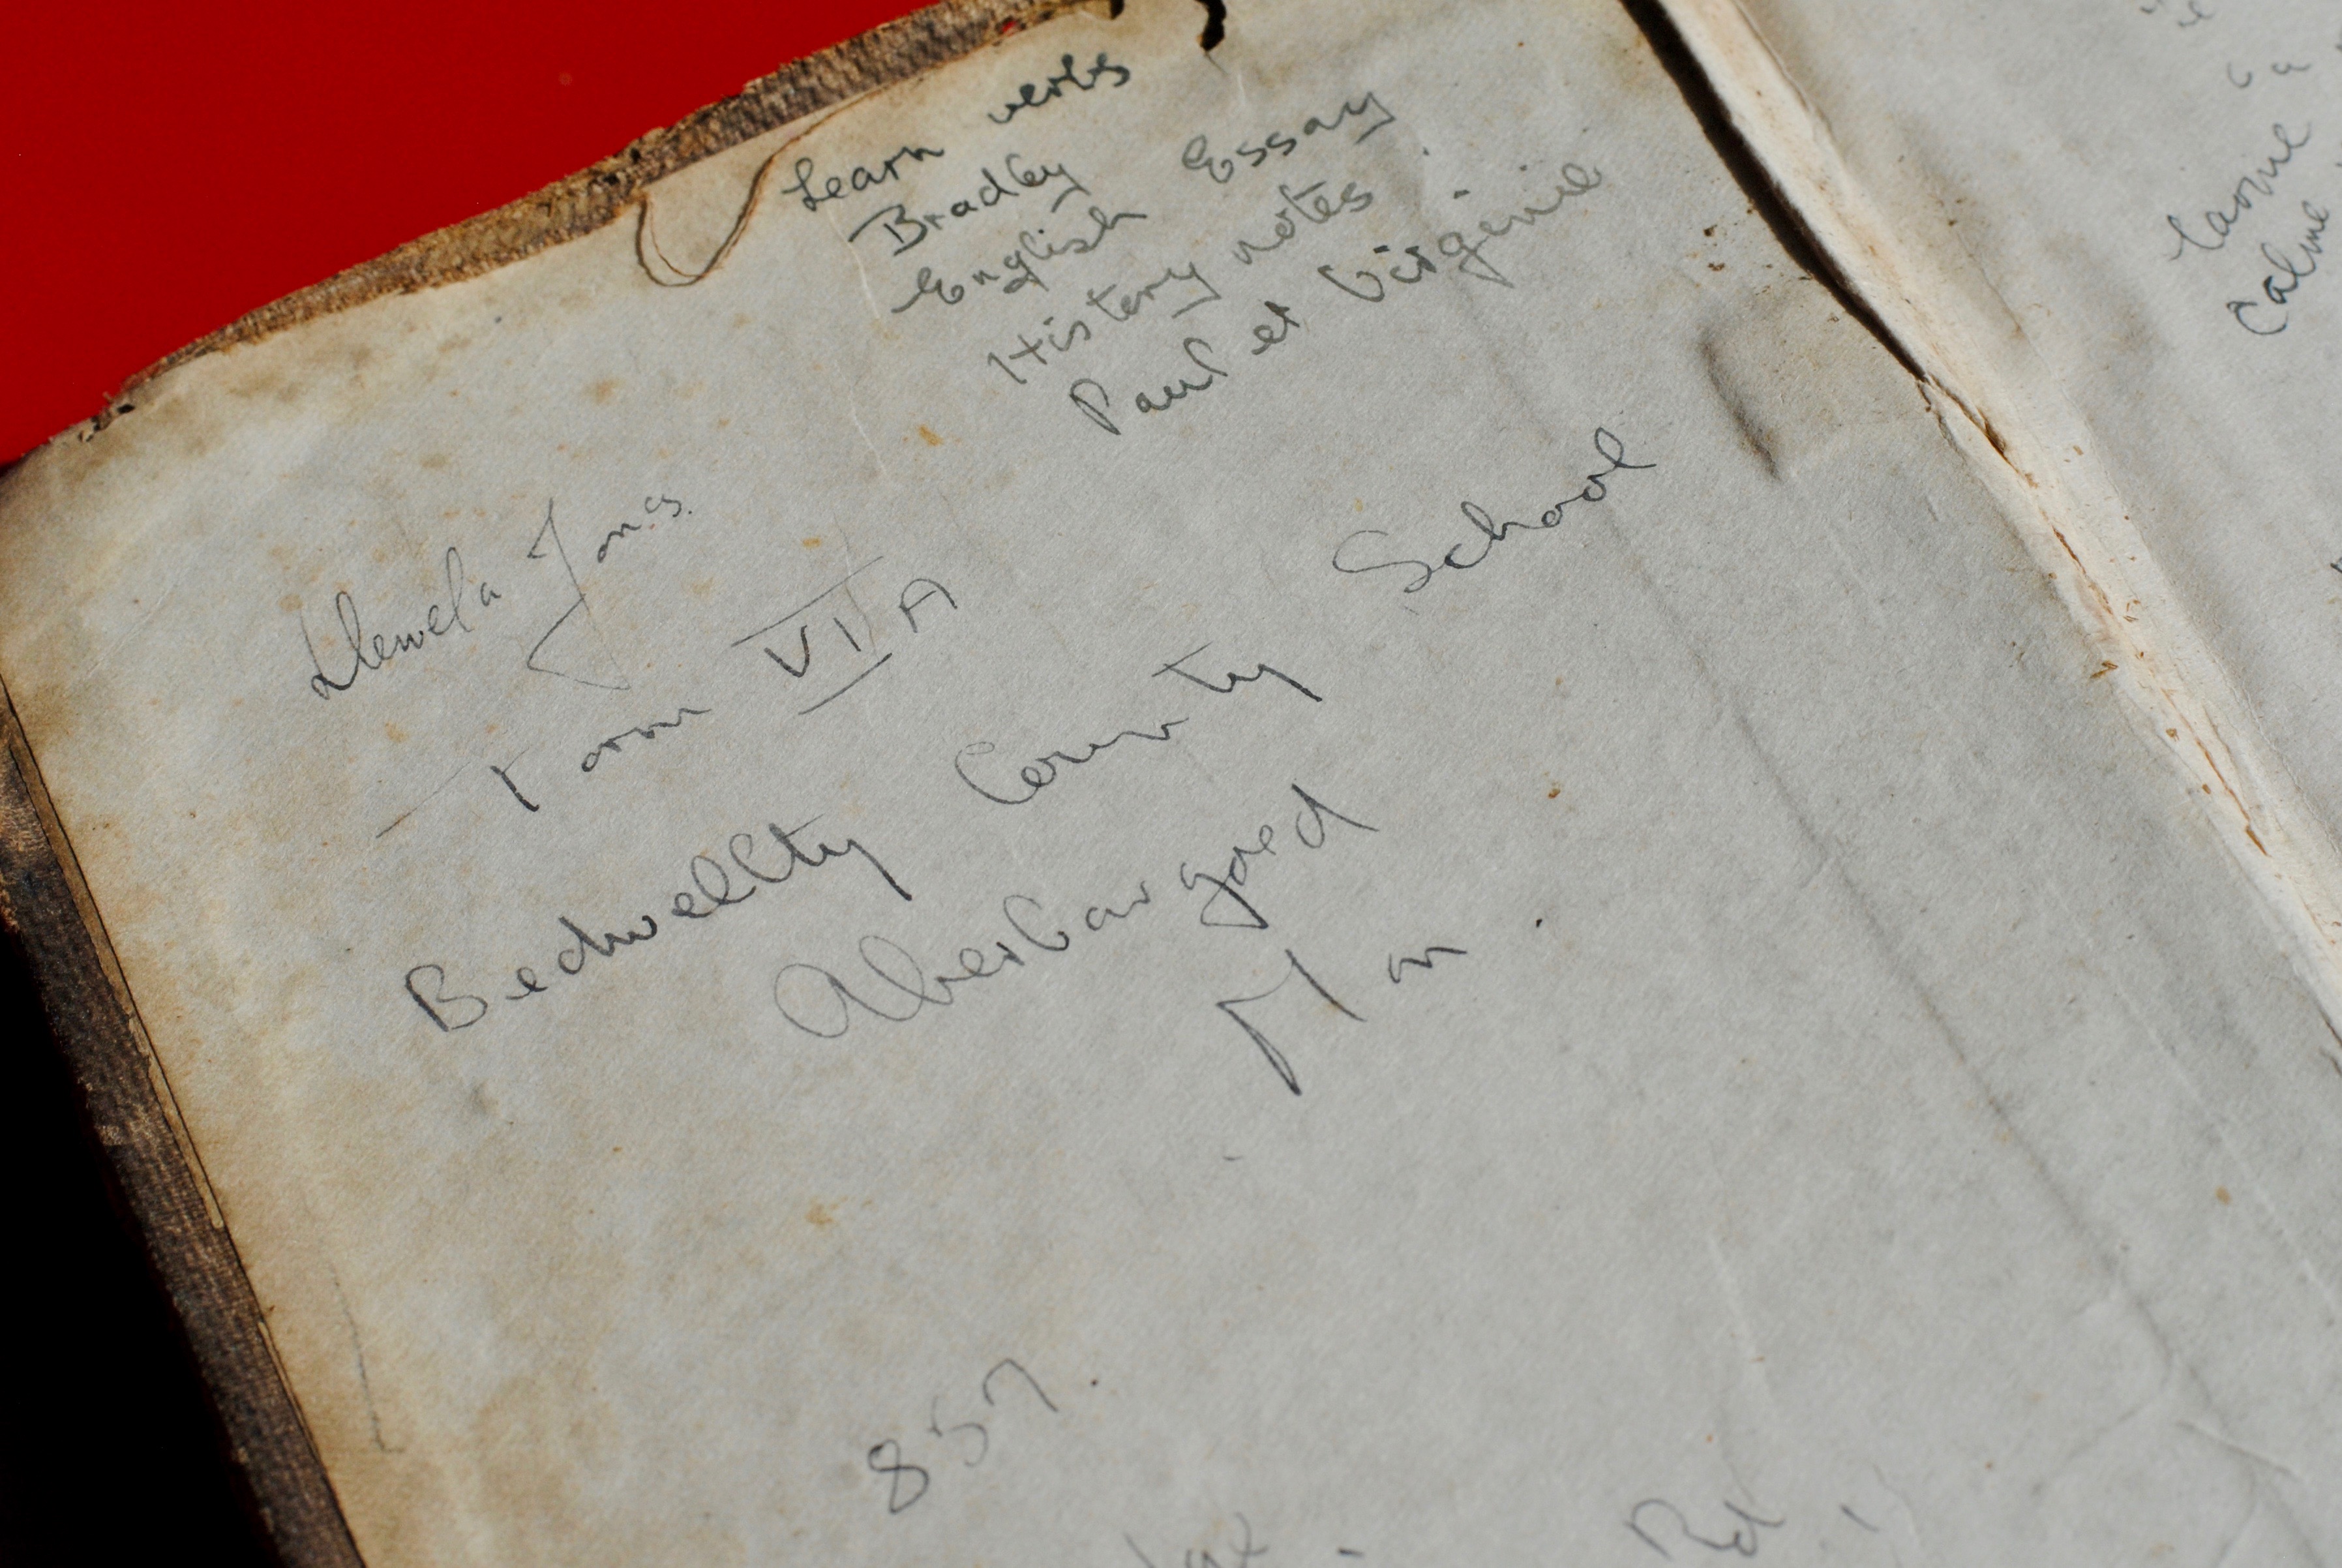 Learn verbs
Bradley
English Essay
History notes
Paul et Virginie
Llewela Jones.
Form VI A
Bedwellty County School
Aberbargoed
Mon
857.
Calme